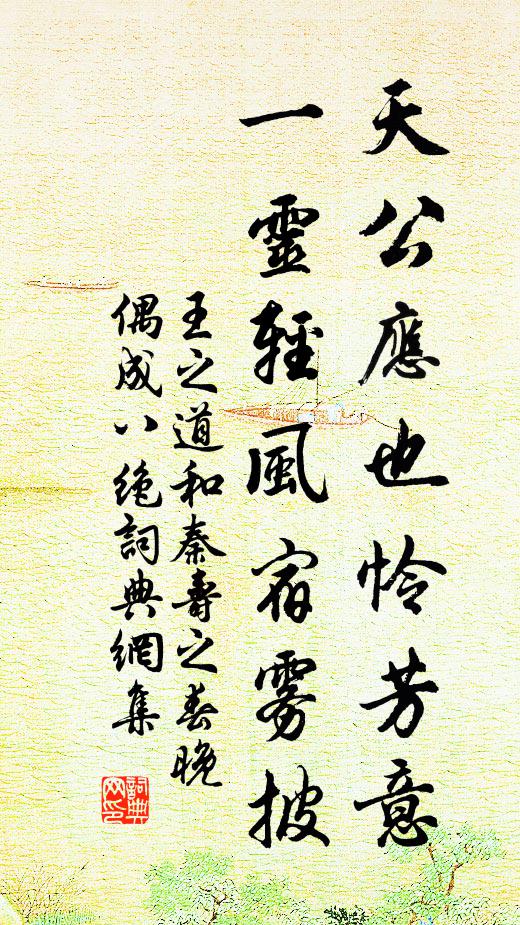 天公應也怜芳意
一靈輕風宿雾披
王之道和秦壽之春晚
偶成八绝詞典網集
詞典
网印